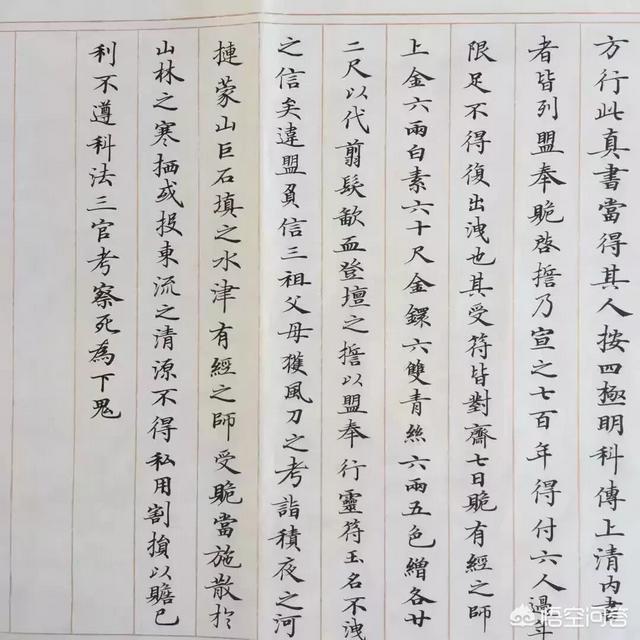 方行此真書當得其人按四極明科傳上清內書
者皆列盟奉䞈啓誓乃宣之七百年得付六人過
限足不得復出洩也其受符皆對齋七日䞈有經之師
上金六兩白素六十尺金鐶六雙青絲六兩五色繒各廿
二尺以代翦髮歃血登壇之誓以盟奉行靈符玉名不洩
之信矣違盟負信三祖父母獲風刀之考詣積夜之河
摙蒙山巨石填之水津有經之師受䞈當施散於
山林之寒栖或投東流之清源不得私用割損以贍己
利不遵科法三官考察死為下鬼
悟空问答